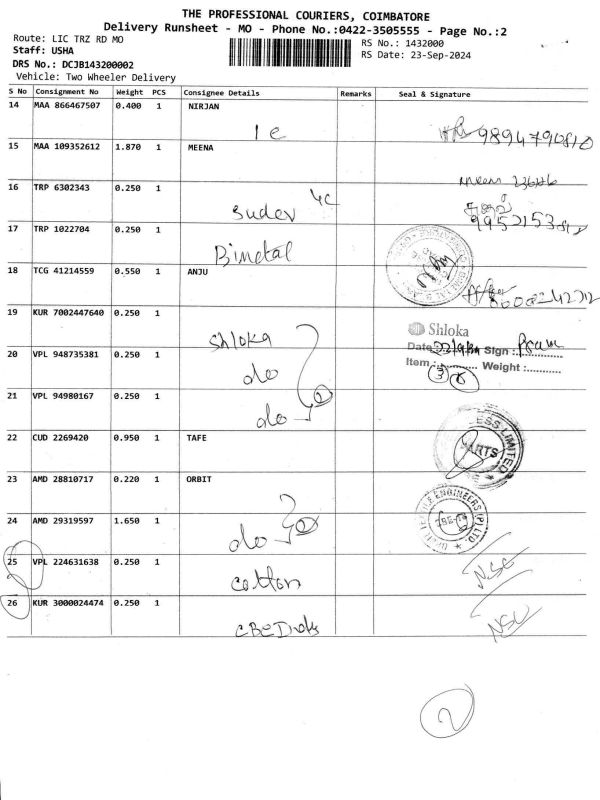 THE PROFESSIONAL COURIERS, COIMBATORE
Delivery Runsheet - MO - Phone No.:0422-3505555 - Page No.:2
Route: LIC TRZ RD MO
Staff: USHA
DRS No.: DCJB143200002
Vehicle: Two Wheeler Delivery
RS No.: 1432000
RS Date: 23-Sep-2024
S No Consignment No Weight PCS Consignee Details Remarks Seal & Signature
14 MAA 866467507 0.400 1 NIRJAN
15 MAA 109352612 1.870 1 MEENA
16 TRP 6302343 0.250 1 Sudev
17 TRP 1022704 0.250 1 Bimetal
18 TCG 41214559 0.550 1 ANJU
19 KUR 7002447640 0.250 1 Shloka
Shloka
Date Sign :
Item : Weight :
20 VPL 948735381 0.250 1 do
21 VPL 94980167 0.250 1 do
22 CUD 2269420 0.950 1 TAFE
23 AMD 28810717 0.220 1 ORBIT
24 AMD 29319597 1.650 1 do
25 VPL 224631638 0.250 1 cotton
26 KUR 3000024474 0.250 1
2